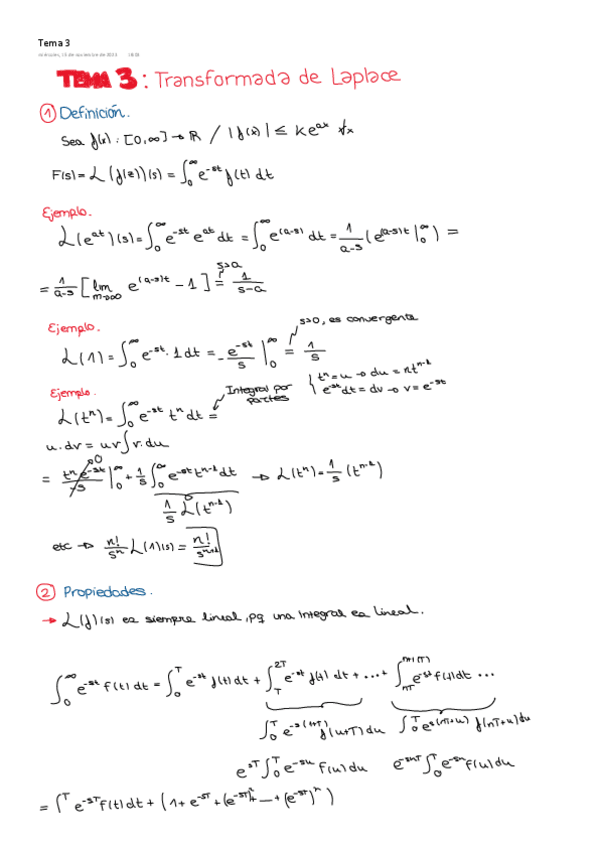 Tema 3
miércoles, 15 de noviembre de 2023
TEMA 3: Transformada de Laplace
① Definición.
Sea f(x): [0,∞] → ℝ / |f(x)| ≤ K e^{ax} ∀x
F(s) = L(f(z))(s) = ∫_0^∞ e^{-st} f(t) dt
Ejemplo.
L(e^{at})(s) = ∫_0^∞ e^{-st} e^{at} dt = ∫_0^∞ e^{(a-s)} dt = 1/(a-s) (e^{(a-s)t} |_0^∞) =
s>a
= 1/(a-s) [lim_{m→∞} e^{(a-s)t} - 1] = 1/(s-a)
s>0, es convergente
Ejemplo.
L(1) = ∫_0^∞ e^{-st} · 1 dt = - e^{-st}/s |_0^∞ = 1/s
Ejemplo.
Integral por partes
{ t^n = u → du = n t^{n-1}
e^{-st} dt = dv → v = e^{-st}
L(t^n) = ∫_0^∞ e^{-st} t^n dt =
u.dv = uv ∫ v.du
= t^n e^{-st}/-s |_0^∞ + 1/s ∫_0^∞ e^{-st} t^{n-1} dt → L(t^n) = 1/s (t^{n-1})
1/s L(t^{n-1})
etc → n!/s^n L(1)(s) = n!/s^{n+1}
② Propiedades.
→ L(f)(s) es siempre lineal, pq una integral es lineal.
∫_0^∞ e^{-st} f(t) dt = ∫_0^T e^{-st} f(t) dt + ∫_T^{2T} e^{-st} f(t) dt + ... + ∫_{nT}^{n+1(T)} e^{-st} f(t) dt ...
∫_0^T e^{-s(u+T)} f(u+T) du ∫_0^T e^{s(nT+u)} f(nT+u) du
e^{sT} ∫_0^T e^{-su} f(u) du e^{-snT} ∫_0^T e^{-su} f(u) du
= ∫^T e^{-sT} f(t) dt + (1 + e^{-sT} + (e^{-sT})^2 + ... + (e^{-sT})^n)